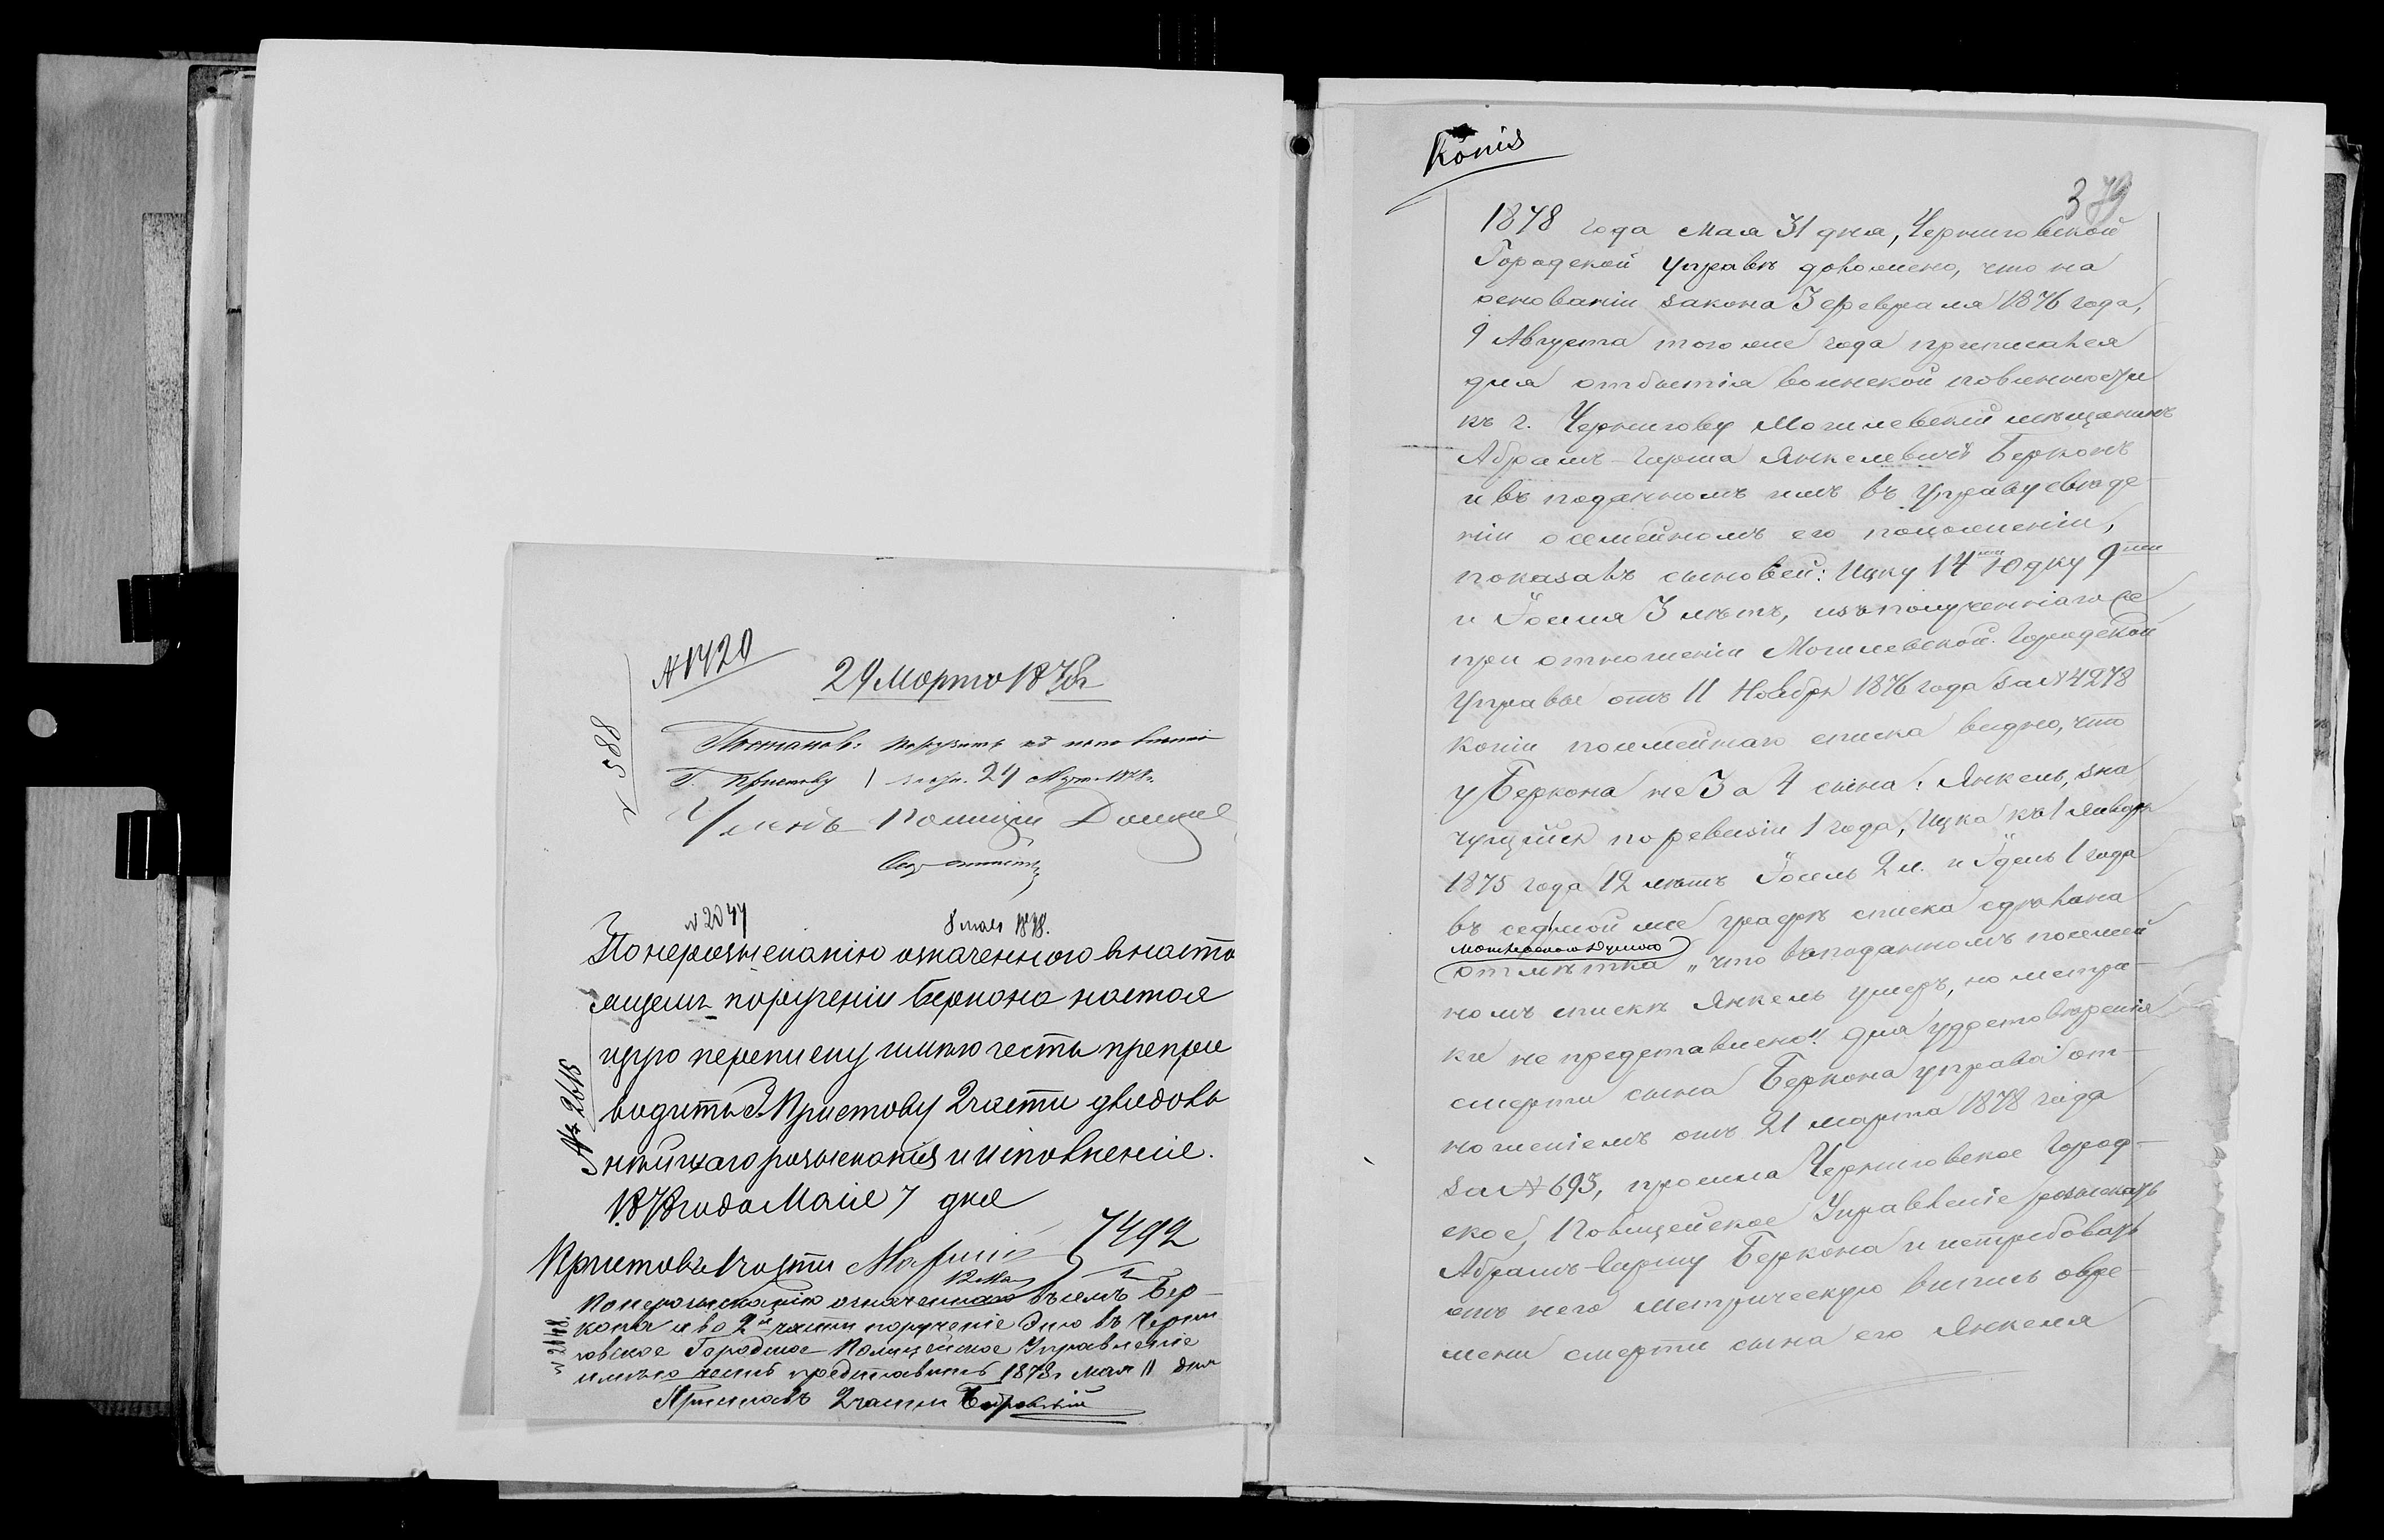 № 1420
29 Марта 1878 г.
№ 588
Г. Приставу 1 части. 24 Марта 1878 г.
Членъ Полиціи
№ 2044
8 мая 1878.
По неразысканію означенного в насто
ящемъ порученіи Беркона настоя
щую переписку имѣю честь препро
водить Г. Приставу 2 части для довъ
нѣйшаго розысканія и исполненіе.
№ 2615
1878 года Маія 7 дня
Приставъ 1 части
7492
12 Мая
По неразысканію означеннаго въ семъ Бер-
кона и во 2й части порученіе Это въ Черни
говское Городское Полицейское Управленіе
имѣю честь представить 1878 г. Мая 11 дня
№ 2148.
Приставъ 2 части
Копія
379
1878 года Мая 31 дня, Черниговской
Городской Управѣ доложено, что на
основаніи закона 3 февраля 1876 года,
9 Августа того же года приписался
для отбытія воинской повинности
къ г. Чернигову Могилевскій мѣщанинъ
Абрамъ-Гирша Янкелевичъ Берконъ
и въ поданномъ имъ въ Управу свѣде-
ніи о семейномъ его положеніи,
показавъ сыновей: Ицку 14 лѣт Юдку 9 ти
и Іосиля 3 лѣтъ, изъ полученнаго же
при отношеніи Могилевской Городской
Управы отъ 11 Ноября 1876 года за № 4278
копіи посемейнаго списка видно, что
у Беркона не 3 а 4 сына: Янкель, зна
чущійся по ревизіи 1 года, Ицка къ 1 Января
1875 года 12 лѣтъ Іосель 2 л. и Іудель 1 года
въ седьмой же графѣ списка сдѣлана
отмѣтка „что въ поданномъ посемей
номъ спискѣ Янкель умеръ, но метри-
ки не представлено". Для удостовѣренія
смерти сына Беркона Управа от-
ношеніемъ отъ 21 марта 1878 года
за № 693, просила Черниговское Город-
ское, Полицейское Управленіе розыскать
Абрамъ-Гиршу Беркона и истребовать
отъ него метрическую выпись о вре-
мени смерти сына его Янкеля